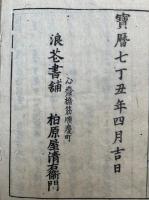 寶暦七丁丑年四月吉日
心齋橋筋順慶町
浪花書舗 柏原屋清右衛門